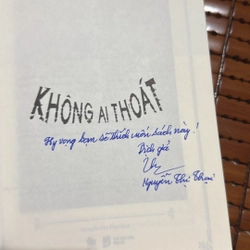 KHÔNG AI THOÁT
Hy vọng bạn sẽ thích cuốn sách này..!
Dịch giả
Nguyễn Thị Thoại